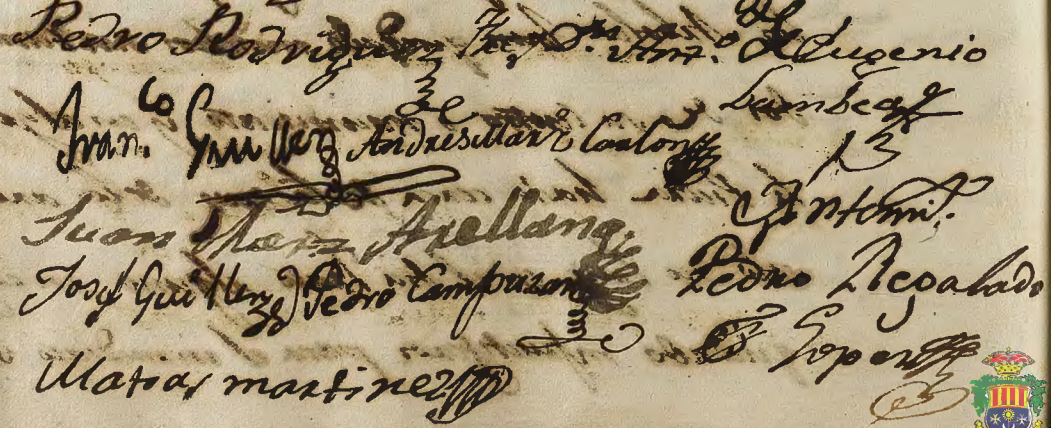 Pedro Rodriguez Fr. Dn. Antº. de Eugenio
Lambea
Franco Guillen Andres Marz Carlon
Antoni.
Juan Marz Arellano
Josef Guillen Pedro Campuzano Pedro Regalado
Lopez
Matias martinez